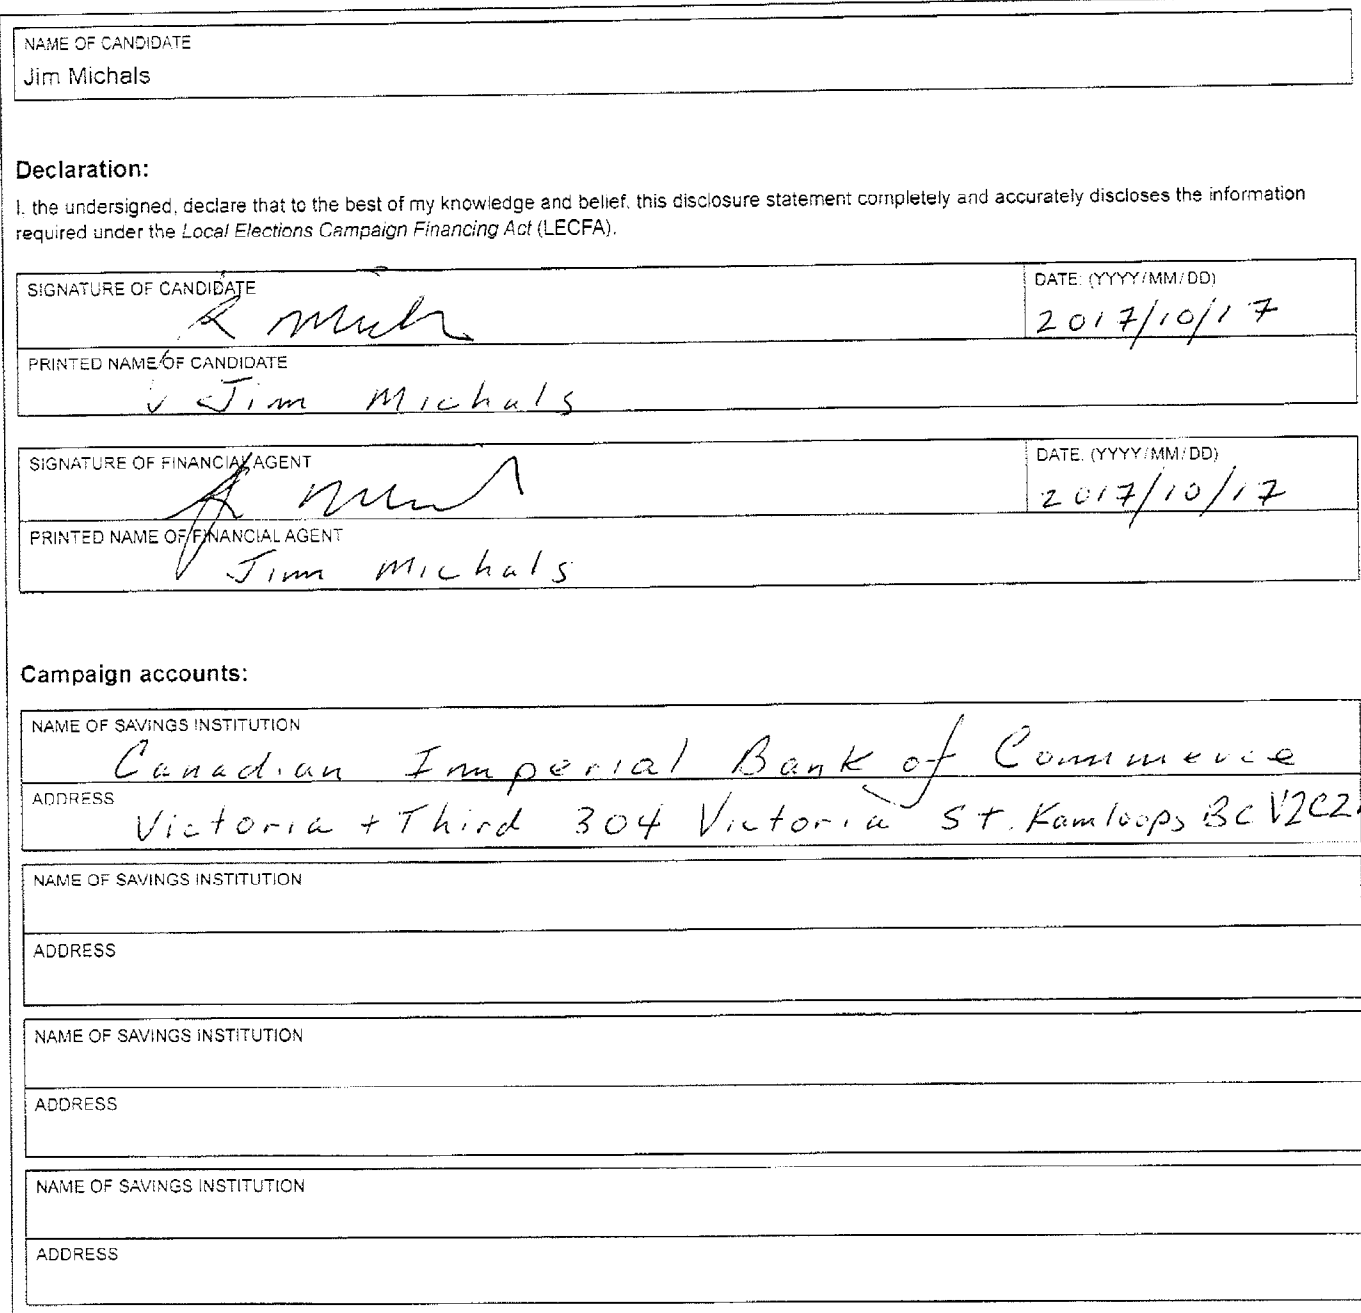 NAME OF CANDIDATE
Jim Michals
Declaration:
I, the undersigned, declare that to the best of my knowledge and belief, this disclosure statement completely and accurately discloses the information
required under the Local Elections Campaign Financing Act (LECFA).
SIGNATURE OF CANDIDATE
DATE: (YYYY/MM/DD)
2017/10/17
PRINTED NAME OF CANDIDATE
Jim Michals
SIGNATURE OF FINANCIAL AGENT
DATE: (YYYY/MM/DD)
2017/10/17
PRINTED NAME OF FINANCIAL AGENT
Jim Michals
Campaign accounts:
NAME OF SAVINGS INSTITUTION
Canadian Imperial Bank of Commerce
ADDRESS
Victoria + Third 304 Victoria St. Kamloops BC V2C2
NAME OF SAVINGS INSTITUTION
ADDRESS
NAME OF SAVINGS INSTITUTION
ADDRESS
NAME OF SAVINGS INSTITUTION
ADDRESS